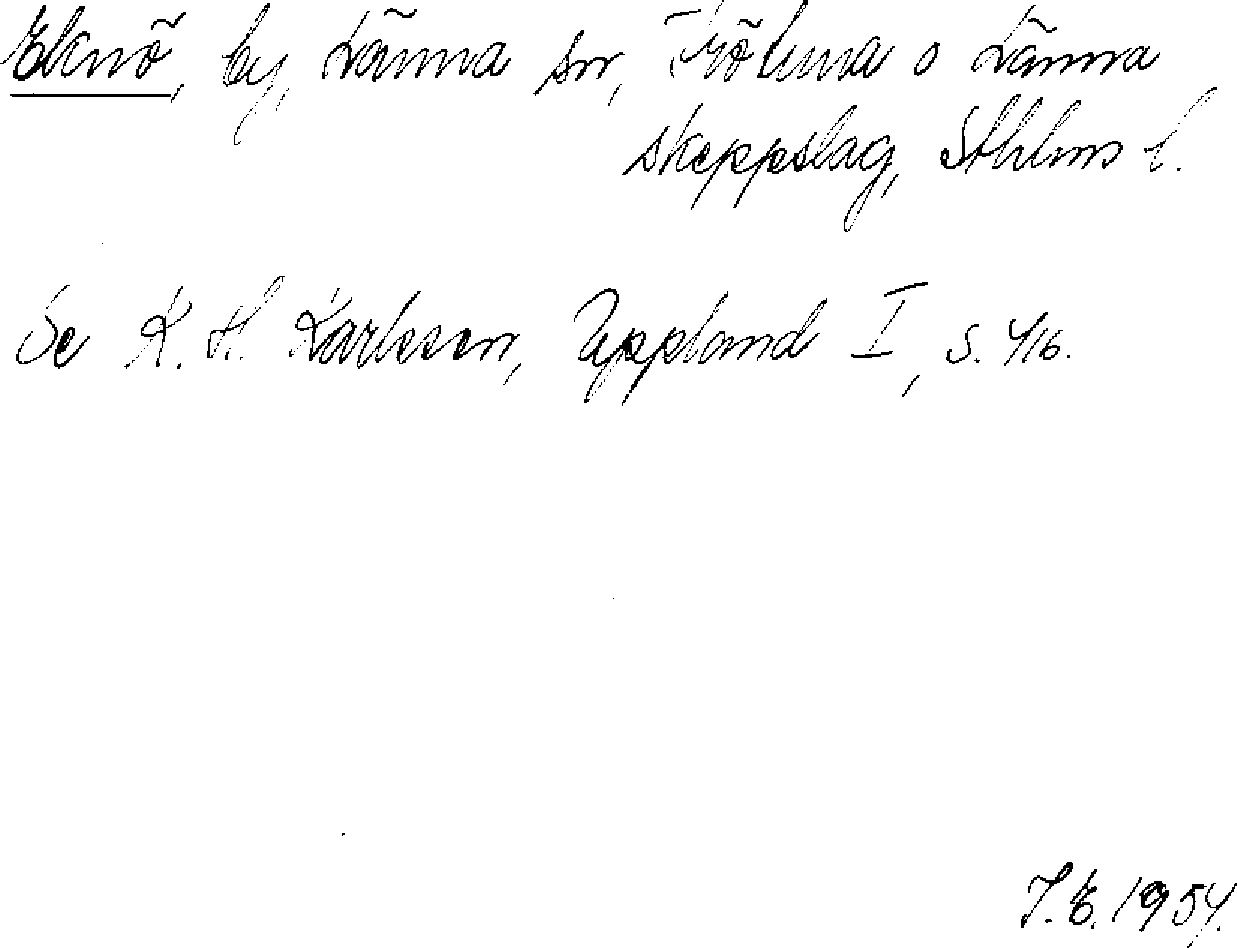 Eknö, by, Länna sn, Frötuna o Länna
skeppslag, Sthlms l.
Se K. H. Karlsson, Uppland I, s. 416.
J. E. 1954.